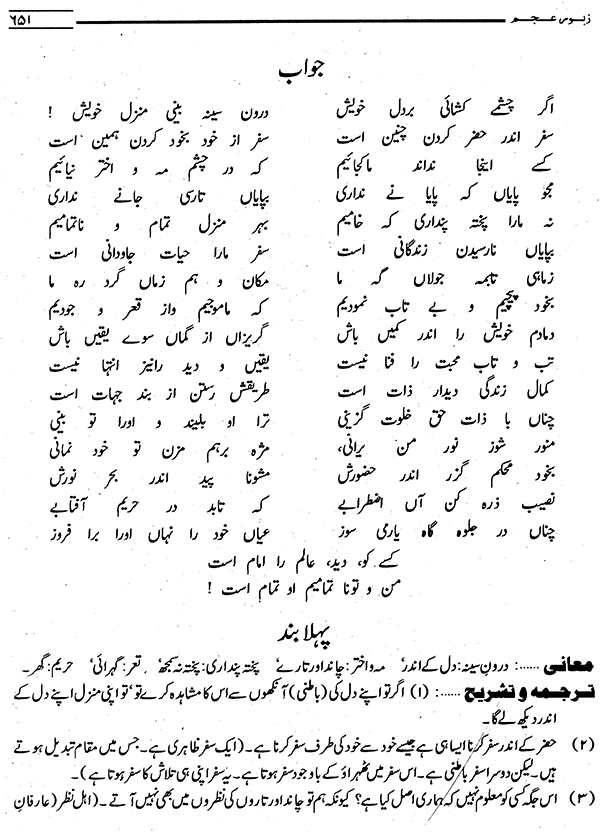 زبورِ عجم
۶۵۱
جواب
اگر چشمے کشائی بردل خویش درون سینہ بینی منزل خویش !
سفر اندر حضر کردن چنین است سفر از خود بخود کردن ہمین است
کسے اینجا نداند ماکجائیم کہ در چشم مہ و اختر نیائیم
مجو پایاں کہ پایا نے نداری بپایاں تارسی جانے نداری
نہ مارا پختہ پنداری کہ خامیم بہر منزل تمام و ناتمامیم
بپایاں نارسیدن زندگانی است سفر مارا حیات جاودانی است
زماہی تابمہ جولاں گہ ما مکان و ہم زماں گرد رہ ما
بخود پیچیم و بے تاب نمودیم کہ ماموجیم واز قعر و جودیم
دمادم خویش را اندر کمیں باش گریزاں از گماں سوے یقیں باش
تب و تاب محبت را فنا نیست یقیں و دید رانیز انتہا نیست
کمال زندگی دیدار ذات است طریقش رستن از بند جہات است
چناں با ذات حق خلوت گزینی ترا او بلیند و اورا تو بینی
منور شوز نور من یرانی، مژہ برہم مزن تو خود نمانی
بخود محکم گزر اندر حضورش مشونا پید اندر بحر نورش
نصیب ذرہ کن آں اضطرابے کہ تابد در حریم آفتابے
چناں در جلوہ گاہ یاری سوز عیاں خود را نہاں اورا برا فروز
کسے کو، دید، عالم را امام است
من و تونا تمامیم او تمام است !
پہلا بند
معانی ......: درونِ سینہ: دل کے اندر' مہ و اختر: چاند اور تارے' پختہ پنداری: پختہ نہ سمجھ' تعر: گہرائی' حریم: گھر۔
ترجمہ و تشریح ......: (۱) اگر تو اپنے دل کی (باطنی) آنکھوں سے اس کا مشاہدہ کرے تو' تو اپنی منزل اپنے دل کے
اندر دیکھ لے گا۔
(۲) حضر کے اندر سفر کرنا ایسا ہی ہے جیسے خود سے خود کی طرف سفر کرنا ہے۔ (ایک سفر ظاہری ہے۔ جس میں مقام تبدیل ہوتے
ہیں۔ لیکن دوسرا سفر باطنی ہے۔ اس سفر میں ٹھہراؤ کے باوجود سفر ہوتا ہے۔ یہ سفر اپنی ہی تلاش کا سفر ہوتا ہے)۔
(۳) اس جگہ کسی کو معلوم نہیں کہ ہماری اصل کیا ہے؟ کیونکہ ہم تو چاند اور تاروں کی نظروں میں بھی نہیں آتے۔ (اہل نظر (عارفانِ